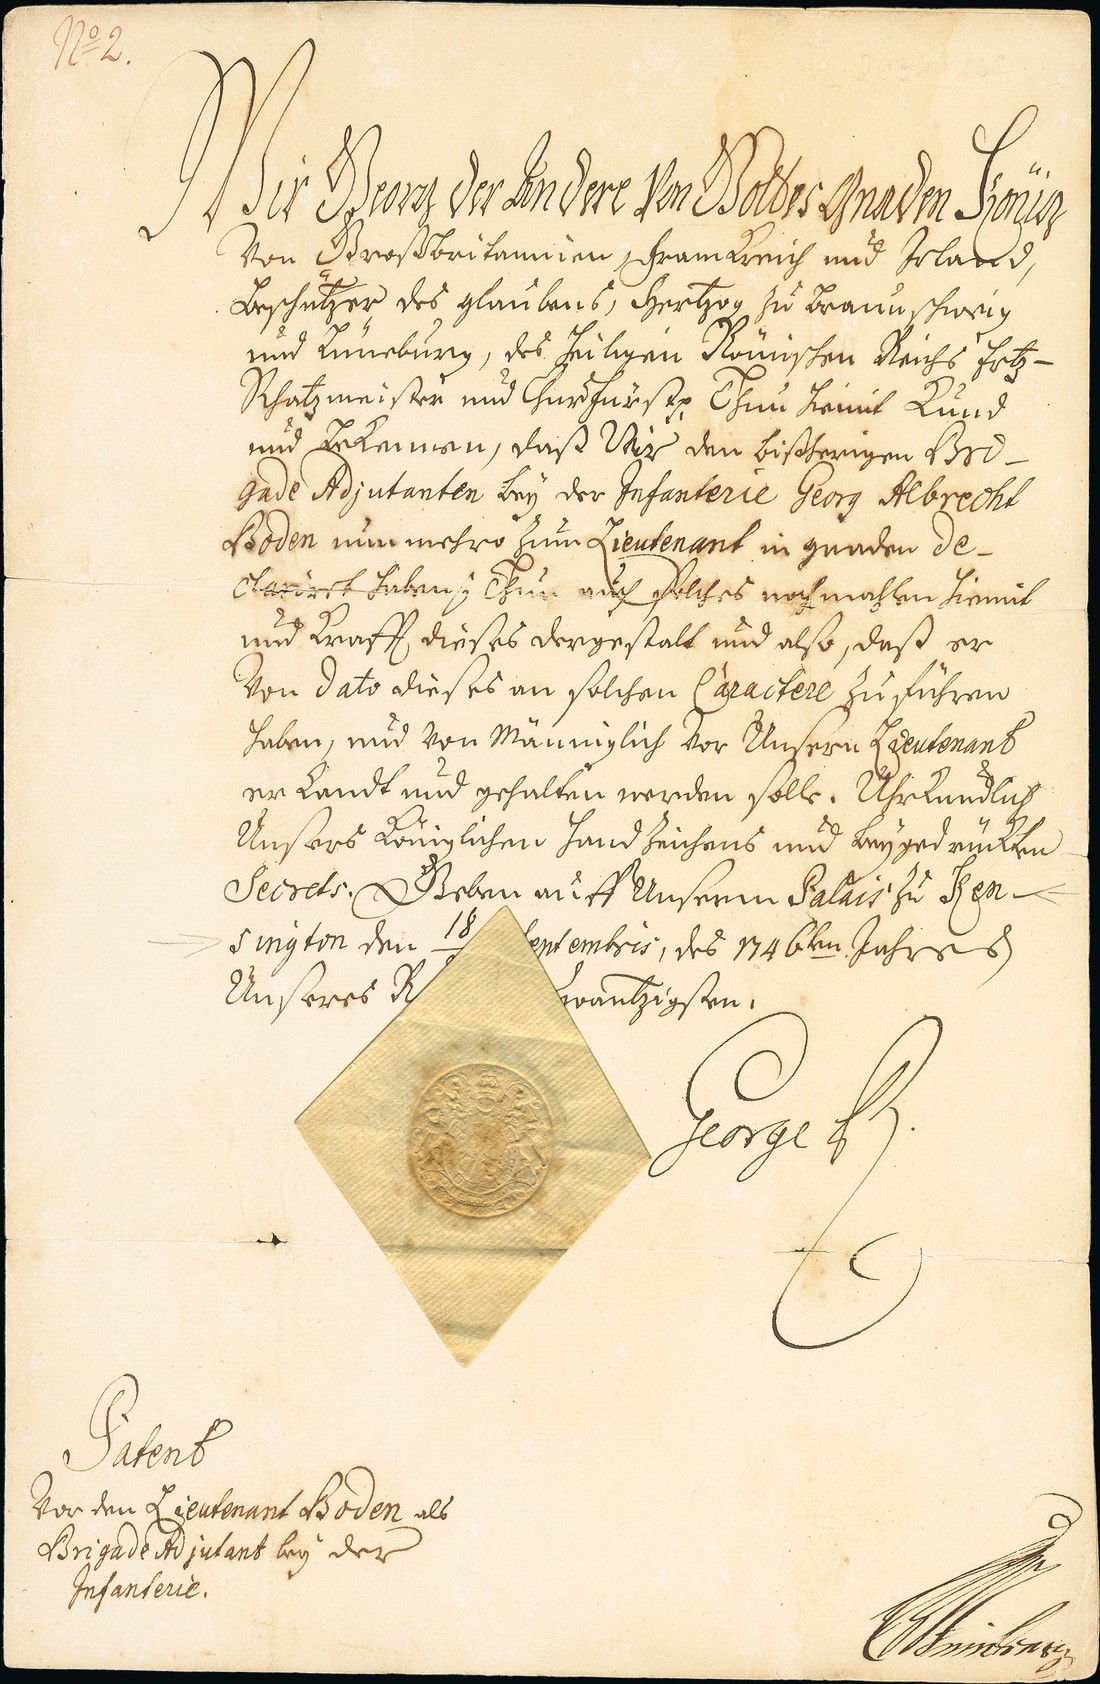 No 2.
Wir Georg der Andere Von Gottes Gnaden König
Von Großbritannien, Franckreich und Irland,
Beschützer des Glaubens, Hertzog zu Braunschweig
und Lüneburg, des Heiligen Römischen Reichs Ertz-
Schatzmeister und Churfürst p Thun hiemit Kund
und bekennen, daß Wir den bißherigen Bri-
gade Adjutanten bey der Infanterie Georg Albrecht
Boden nunmehro zum Lieutenant in gnaden de-
clariret haben; Thun auch solches nochmahlen hiemit
und Krafft dieses dergestalt und also, daß er
Von dato dieses an solchen Caractere zu führen
haben, und von Männiglich vor Unsern Lieutenant
erkandt und gehalten werden solle. Uhrkundlich
Unsers Königlichen Handzeichens und beygedrückten
Secrets. Geben auff Unserm Palais zu Ken-
sington den 18 Septembris, des 1746ten Jahres
Unseres R zwantzigsten.
George R.
Patent
Vor den Lieutenant Boden als
Brigade Adjutant bey der
Infanterie.